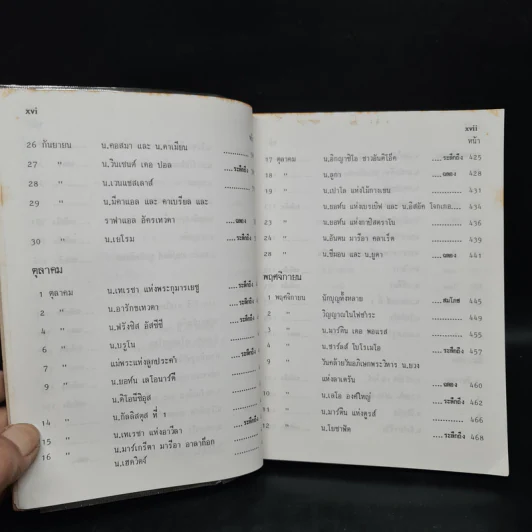 xvi
26 กันยายน น.คอสมา และ น.คาเมียน
27 " น.วินเซนต์ เดอ ปอล ........ระลึกถึง
28 " น.เวนแชสเลาส์
29 " น.มีคาแอล และ คาเบรียล และ
ราฟาแอล อัครเทวดา ........ฉลอง
30 " น.เยโรม ........ระลึกถึง
ตุลาคม
1 ตุลาคม น.เทเรซา แห่งพระกุมารเยซู ........ระลึกถึง
2 " น.อารักขเทวดา ........ระลึกถึง
4 " น.ฟรังซิส อัสซีซี ........ระลึกถึง
6 " น.บรูโน
7 " แม่พระแห่งลูกประคำ ........ระลึกถึง
9 " น.ยอห์น เลโอนาร์ดี
" น.ดิโอนีซีอุส
14 " น.กัลลิสตุส ที่ 1
15 " น.เทเรซา แห่งอาวีลา ........ระลึกถึง
16 " น.มาร์เกรีตา มารีอา อาลาก๊อก
น.เฮดวิดจ์
xvii
หน้า
17 ตุลาคม น.อิกญาซีโอ ชาวอันติโอ๊ค ....ระลึกถึง 425
18 " น.ลูกา ....ฉลอง 428
19 " น.เปาโล แห่งไม้กางเขน 431
" น.ยอห์น แห่งเบรเบิฟ และ น.อีสอัค โยเกอ.... 434
23 " น.ยอห์น แห่งกาปิสตราโน 436
24 " น.อันตน มารีอา คลาเร็ต 439
28 " น.ซีมอน และ น.ยูดา ....ฉลอง 441
พฤศจิกายน
1 พฤศจิกายน นักบุญทั้งหลาย ....สมโภช 445
2 " วิญญาณในไฟชำระ 449
3 " น.มาร์ติน เดอ พอแรส 455
4 " น.ชาร์ลส์ โบโรเมโอ ....ระลึกถึง 457
9 " วันคล้ายวันอภิเษกพระวิหาร น.ยวง
แห่งลาเตรัน ....ฉลอง 460
10 " น.เลโอ องค์ใหญ่ ....ระลึกถึง 462
11 " น.มาร์ติน แห่งตูรส์ ....ระลึกถึง 466
12 " น.โยซาฟัต ....ระลึกถึง 468